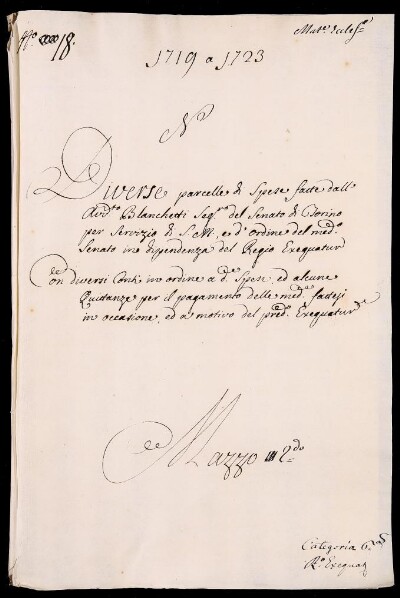 Mat.e Eccles.e
18.
1719 a 1723
N.o
Diverse parcelle di Spese fatte dall
Blanchetti Seg.ro del Senato di Torino
per Servizio di S.M. ed d'ordine del med.o
Senato in dipendenza del Regio Exequatur
Con diversi Conti in ordine a d.e Spese, ed alcune
Quitanze per il pagamento delle med.e fattesi
in occasione, ed a motivo del pred.o Exequatur
Mazzo 2.do
Categoria 6.a
R.o Exequat.r